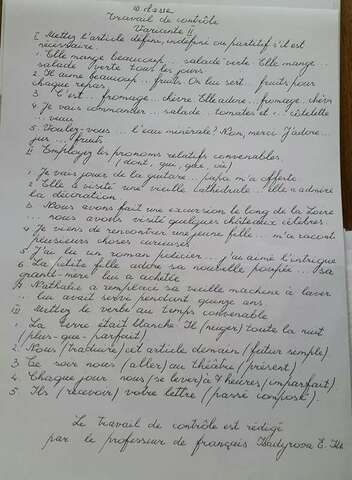 10 classe
Travail de contrôle
Variante II
I. Mettez l'article défini, indéfini ou partitif s'il est
nécessaire.
1. Elle mange beaucoup ... salade verte. Elle mange ...
salade verte tous les jours.
2. Il aime beaucoup ... fruits. On lui sert ... fruits pour
chaque repas.
3. C'est ... fromage ... chèvre. Elle adore ... fromage ... chèvre
4. Je vais commander ... salade ... tomates et ... côtelette
... veau
5. Voulez-vous ... l'eau minérale? Non, merci. J'adore ...
jus ... fruits
II. Employez les pronoms relatifs convenables.
(dont, qui, que, où)
1. Je vais jouer de la guitare ... papa m'a offerte
2. Elle a visité une vieille cathédrale ... elle a admiré
la décoration
3. Nous avons fait une excursion le long de la Loire
... nous avons visité quelques châteaux célèbres.
4. Je viens de rencontrer une jeune fille ... m'a raconté
plusieurs choses curieuses
5. J'ai lu un roman policier ... j'ai aimé l'intrigue
6. La petite fille adore sa nouvelle poupée ... sa
grand-mère lui a achetée
7. Nathalie a remplacé sa vieille machine à laver
... lui avait servi pendant quinze ans
III. Mettez le verbe au temps convenable
1. La terre était blanche. Il (neiger) toute la nuit
(plus-que-parfait).
2. Nous (traduire) cet article demain (futur simple)
3. Ce soir nous (aller) au théâtre (présent)
4. Chaque jour nous (se lever) à 7 heures (imparfait).
5. Ils (recevoir) votre lettre (passé composé).
Le travail de contrôle est rédigé
par le professeur de français E.